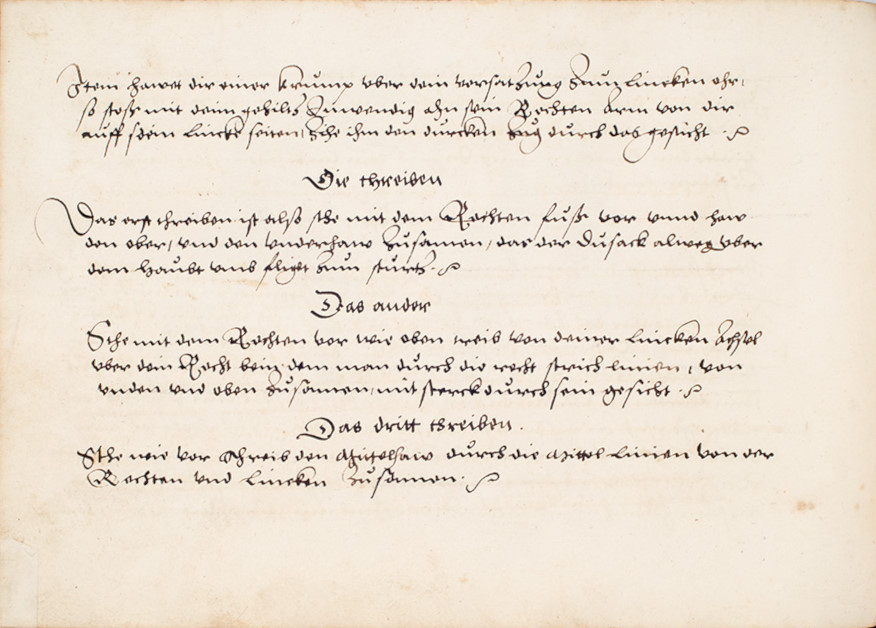 Item hawet dir einer krump vber dein vorsatzung zum lincken ohr,
so stoße mit deim gehiltz Inwendig ahn sein Rechten Arm von dir
auff sein lincke seiten, Zihe ihm den durcken zug durch das gesicht.
Die threiben
Das erst threiben ist also sthe mit dem Rechten fuß vor vnnd haw
den ober, vnd den vnderhaw zusamen, das der Dusack alweg vber
dem haubt vmb flieget zum sturtz.
Das ander
Sthe mit dem Rechten vor wie oben treib von deiner lincken Achsel
vber dein Recht bein dem man durch die recht strich linien, von
vnden vnd oben zusamen, mit sterck durch sein gesicht.
Das dritt threiben.
Sthe wie vor threib den Mittelhaw durch die Mittel linien von der
Rechten vnd lincken zusamen.